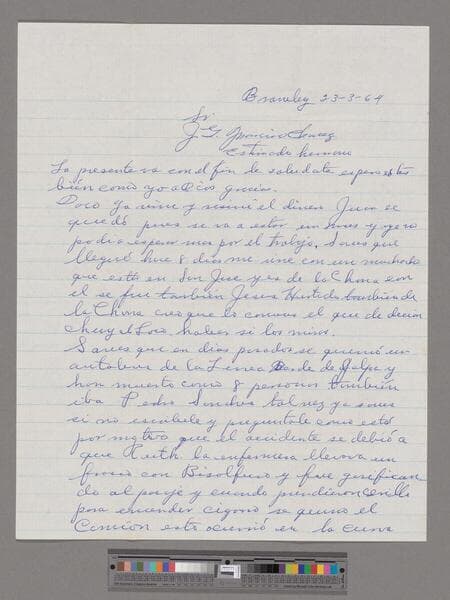 Brawley 23-3-64
Sr.
J. G.
Estimado hermano
La presente va con el fin de saludarte esperando estés
bien como yo a Dios gracias.
Poco ya vine y recibí el dinero Juan se
quedó pues se va a estar un mes y yo no
podia esperar mas por el trabajo. Saves que
llegué hace 8 dias me vine con un muchacho
que está en San Jose y es de la Chona con
el se fue también Jesus Hurtado tambien de
la Chona creo que lo conoces el que le decian
Chuy el haber si los miras.
Saves que en dias pasados se quemó un
autobus de la Linea de Jalpa y
han muerto como 8 personas también
iba Pedro Sanchez tal vez ya saves
si no escribele y preguntale como está
por motivo que el accidente se debió a
que Ruth la enfermera llevava un
frasco con Bisolfuro y fue gasifican
do al pasaje y cuando prendieron cerillo
para encender cigarro se quemó el
Camion esto ocurrió en la curva